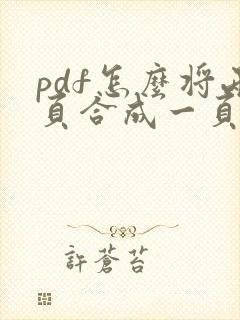 pdf怎麼將
頁合成一頁
許蒼苔